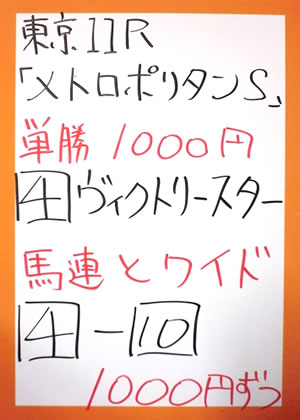 東京11R
「メトロポリタンS」
単勝 1000円
4 ヴィクトリースター
馬連とワイド
4-10
1000円ずつ